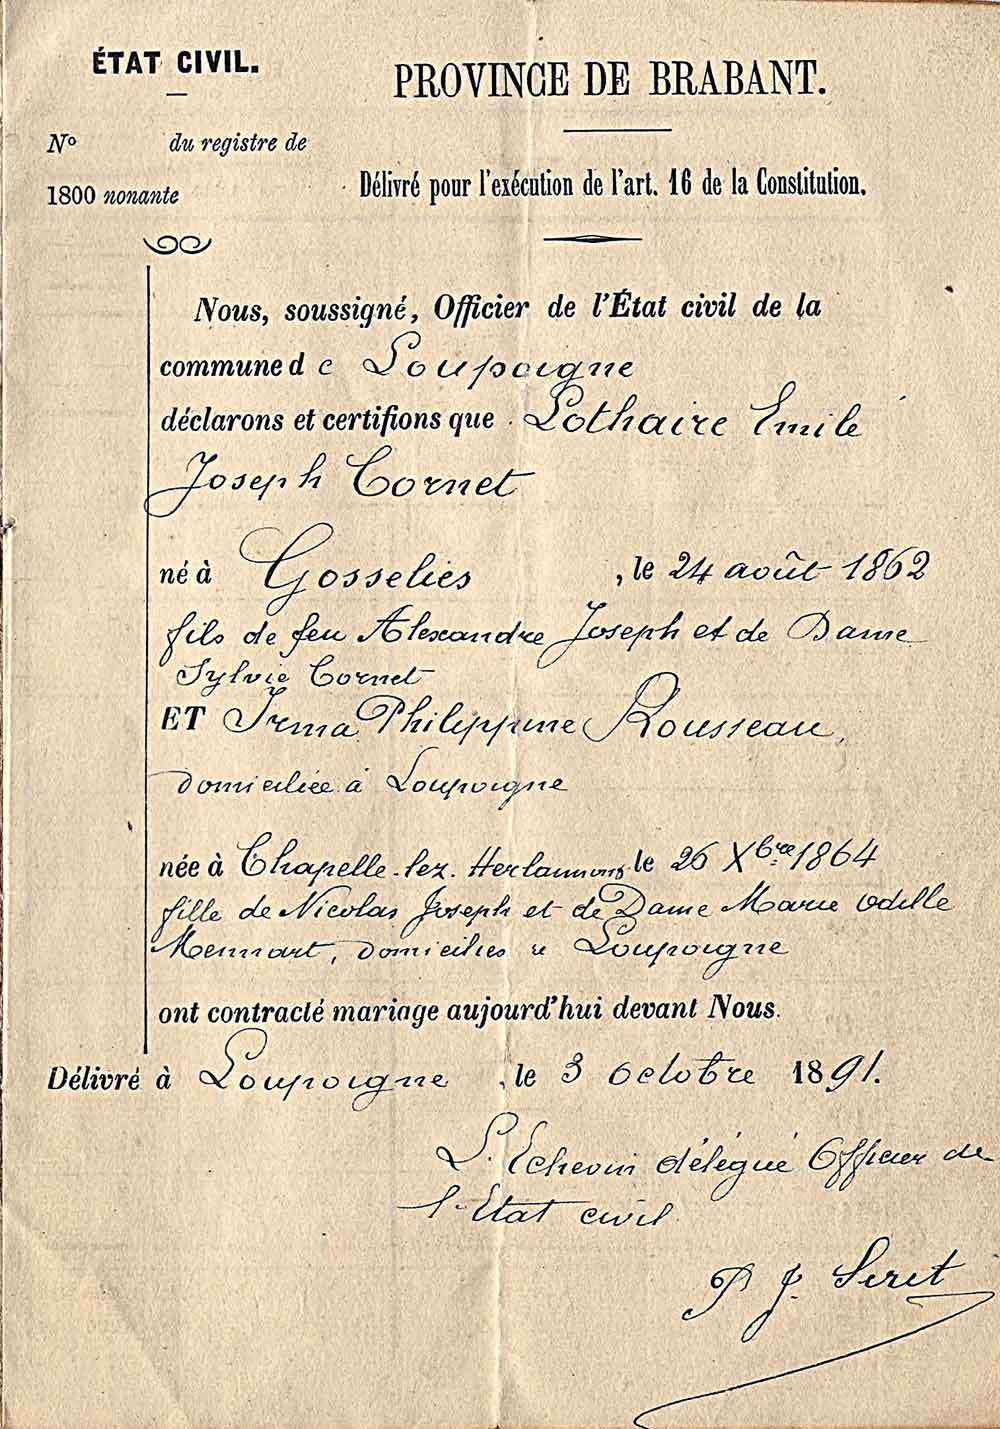 ÉTAT CIVIL.
PROVINCE DE BRABANT.
No du registre de
1800 nonante
Délivré pour l'exécution de l'art. 16 de la Constitution.
Nous, soussigné, Officier de l'État civil de la
commune d e Loupoigne
déclarons et certifions que Lothaire Emile
Joseph Cornet
né à Gosselies , le 24 août 1862
fils de feu Alexandre Joseph et de Dame
Sylvie Cornet
ET Irma Philippine Rousseau,
domiciliée à Loupoigne
née à Chapelle-lez-Herlaimont le 26 Xbre 1864
fille de Nicolas Joseph et de Dame Marie Odille
Mennart, domiciliés à Loupoigne
ont contracté mariage aujourd'hui devant Nous.
Délivré à Loupoigne , le 3 octobre 1891.
L'Echevin délégué Officier de
l'Etat civil
P J. Seret